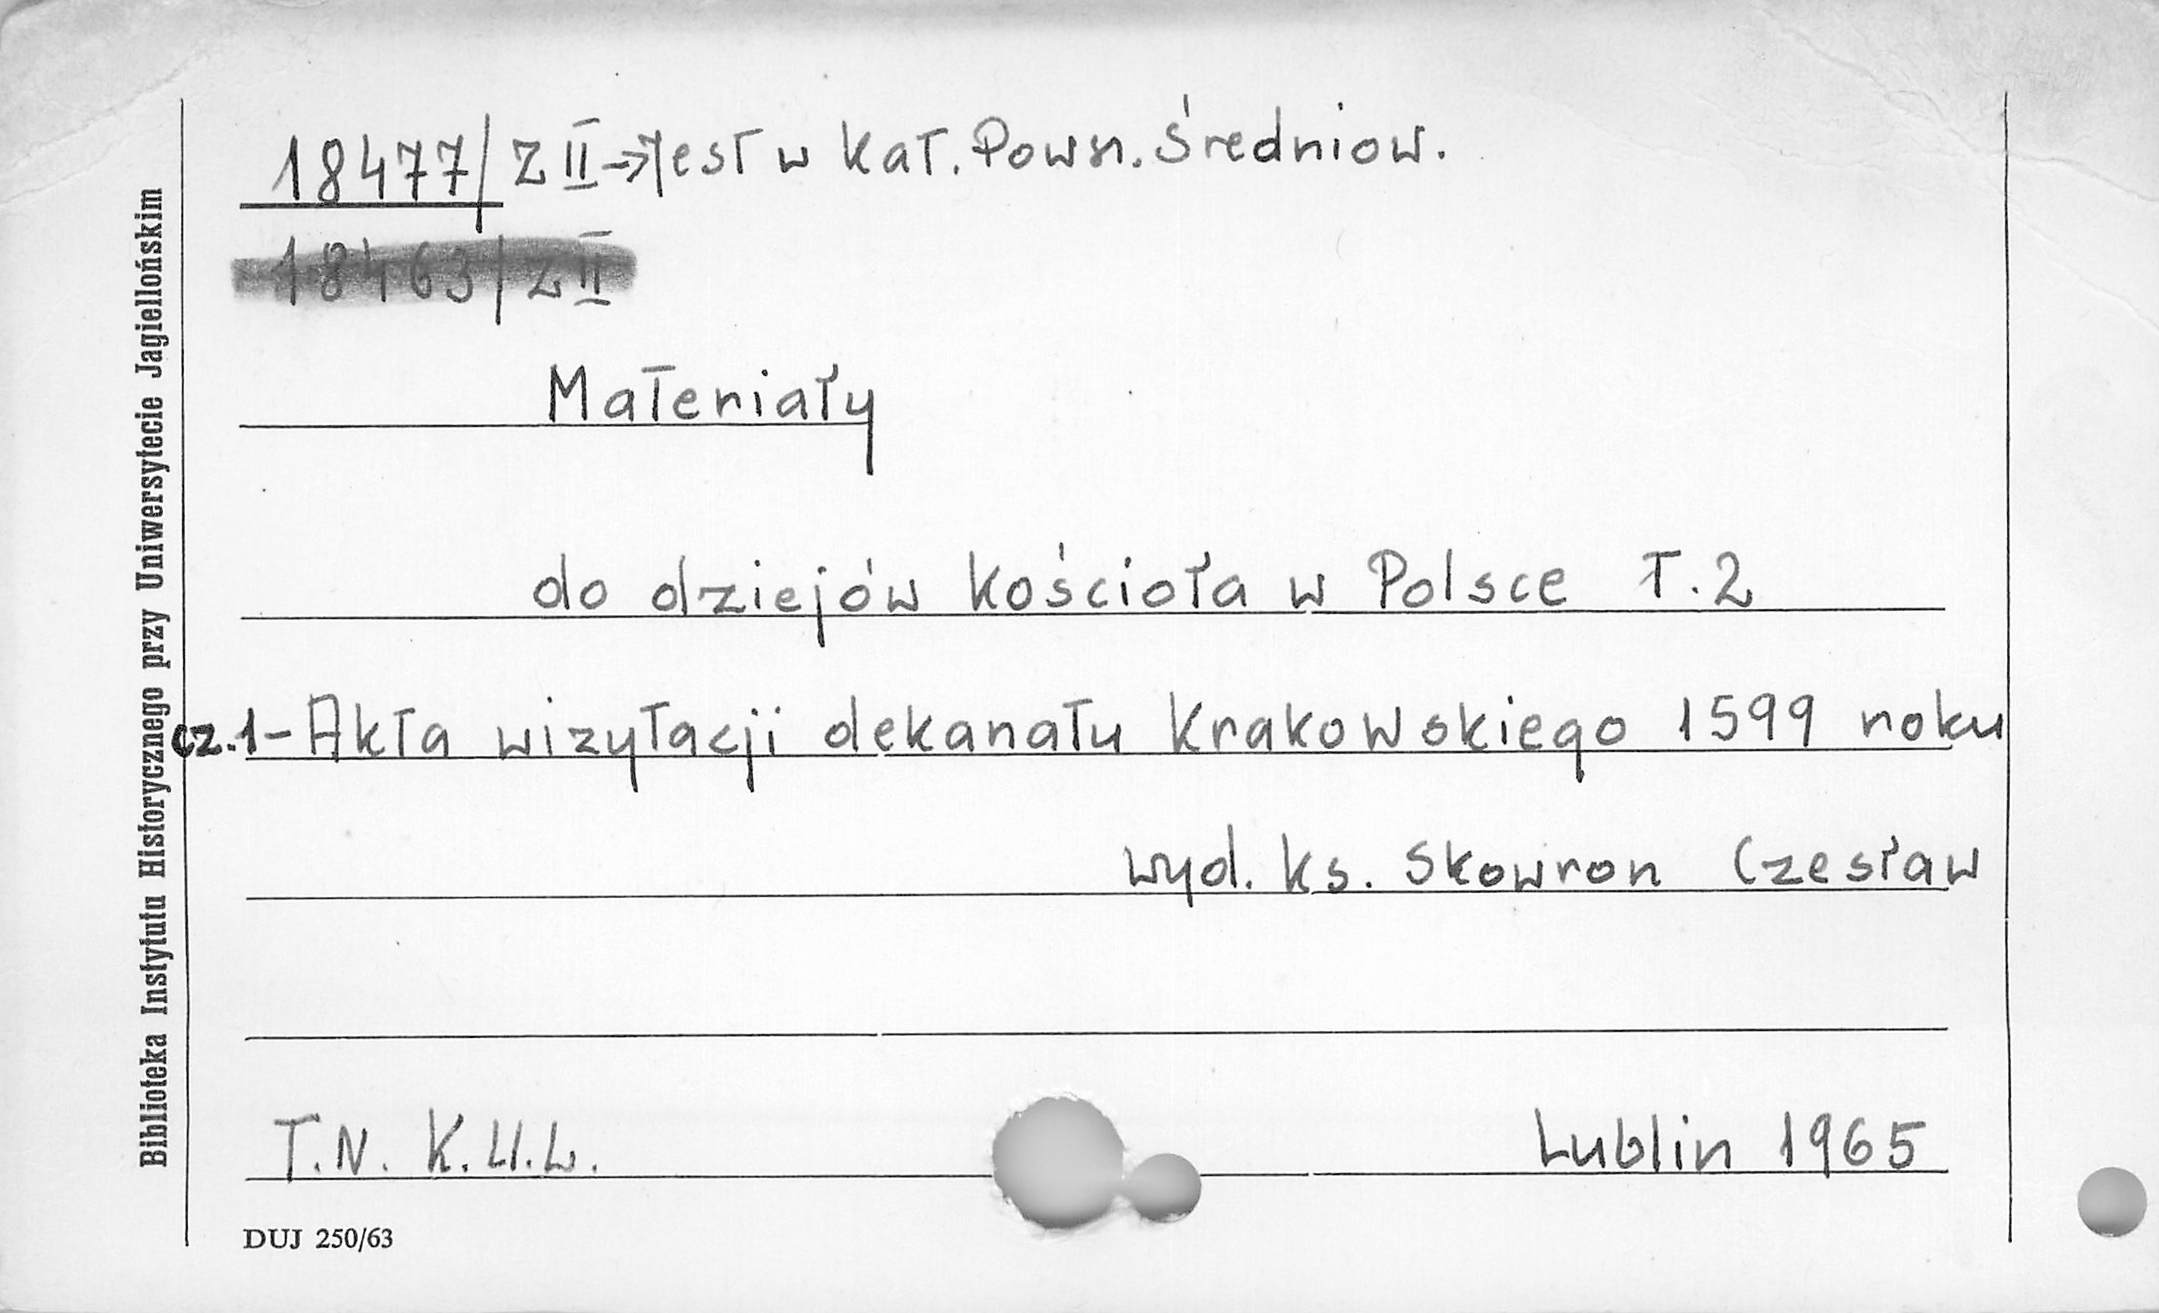 18477/ZII→Jest w kat. Pow. Średniow.
18463/ZII
Materiały
do dziejów kościoła w Polsce T.2
cz.1-Akta wizytacji dekanatu Krakowskiego 1599 roku
wyd. ks. Skowron Czesław
T.N. K.U.L. Lublin 1965
DUJ 250/63
Biblioteka Instytutu Historycznego przy Uniwersytecie Jagiellońskim